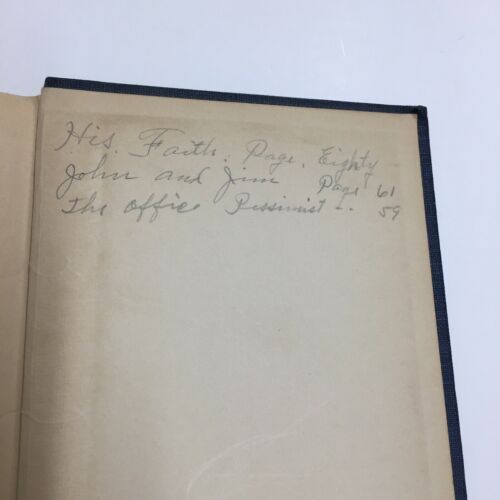 His. Faith. Page. Eighty
John and Jim Page 61
The office Pessimist - . 59